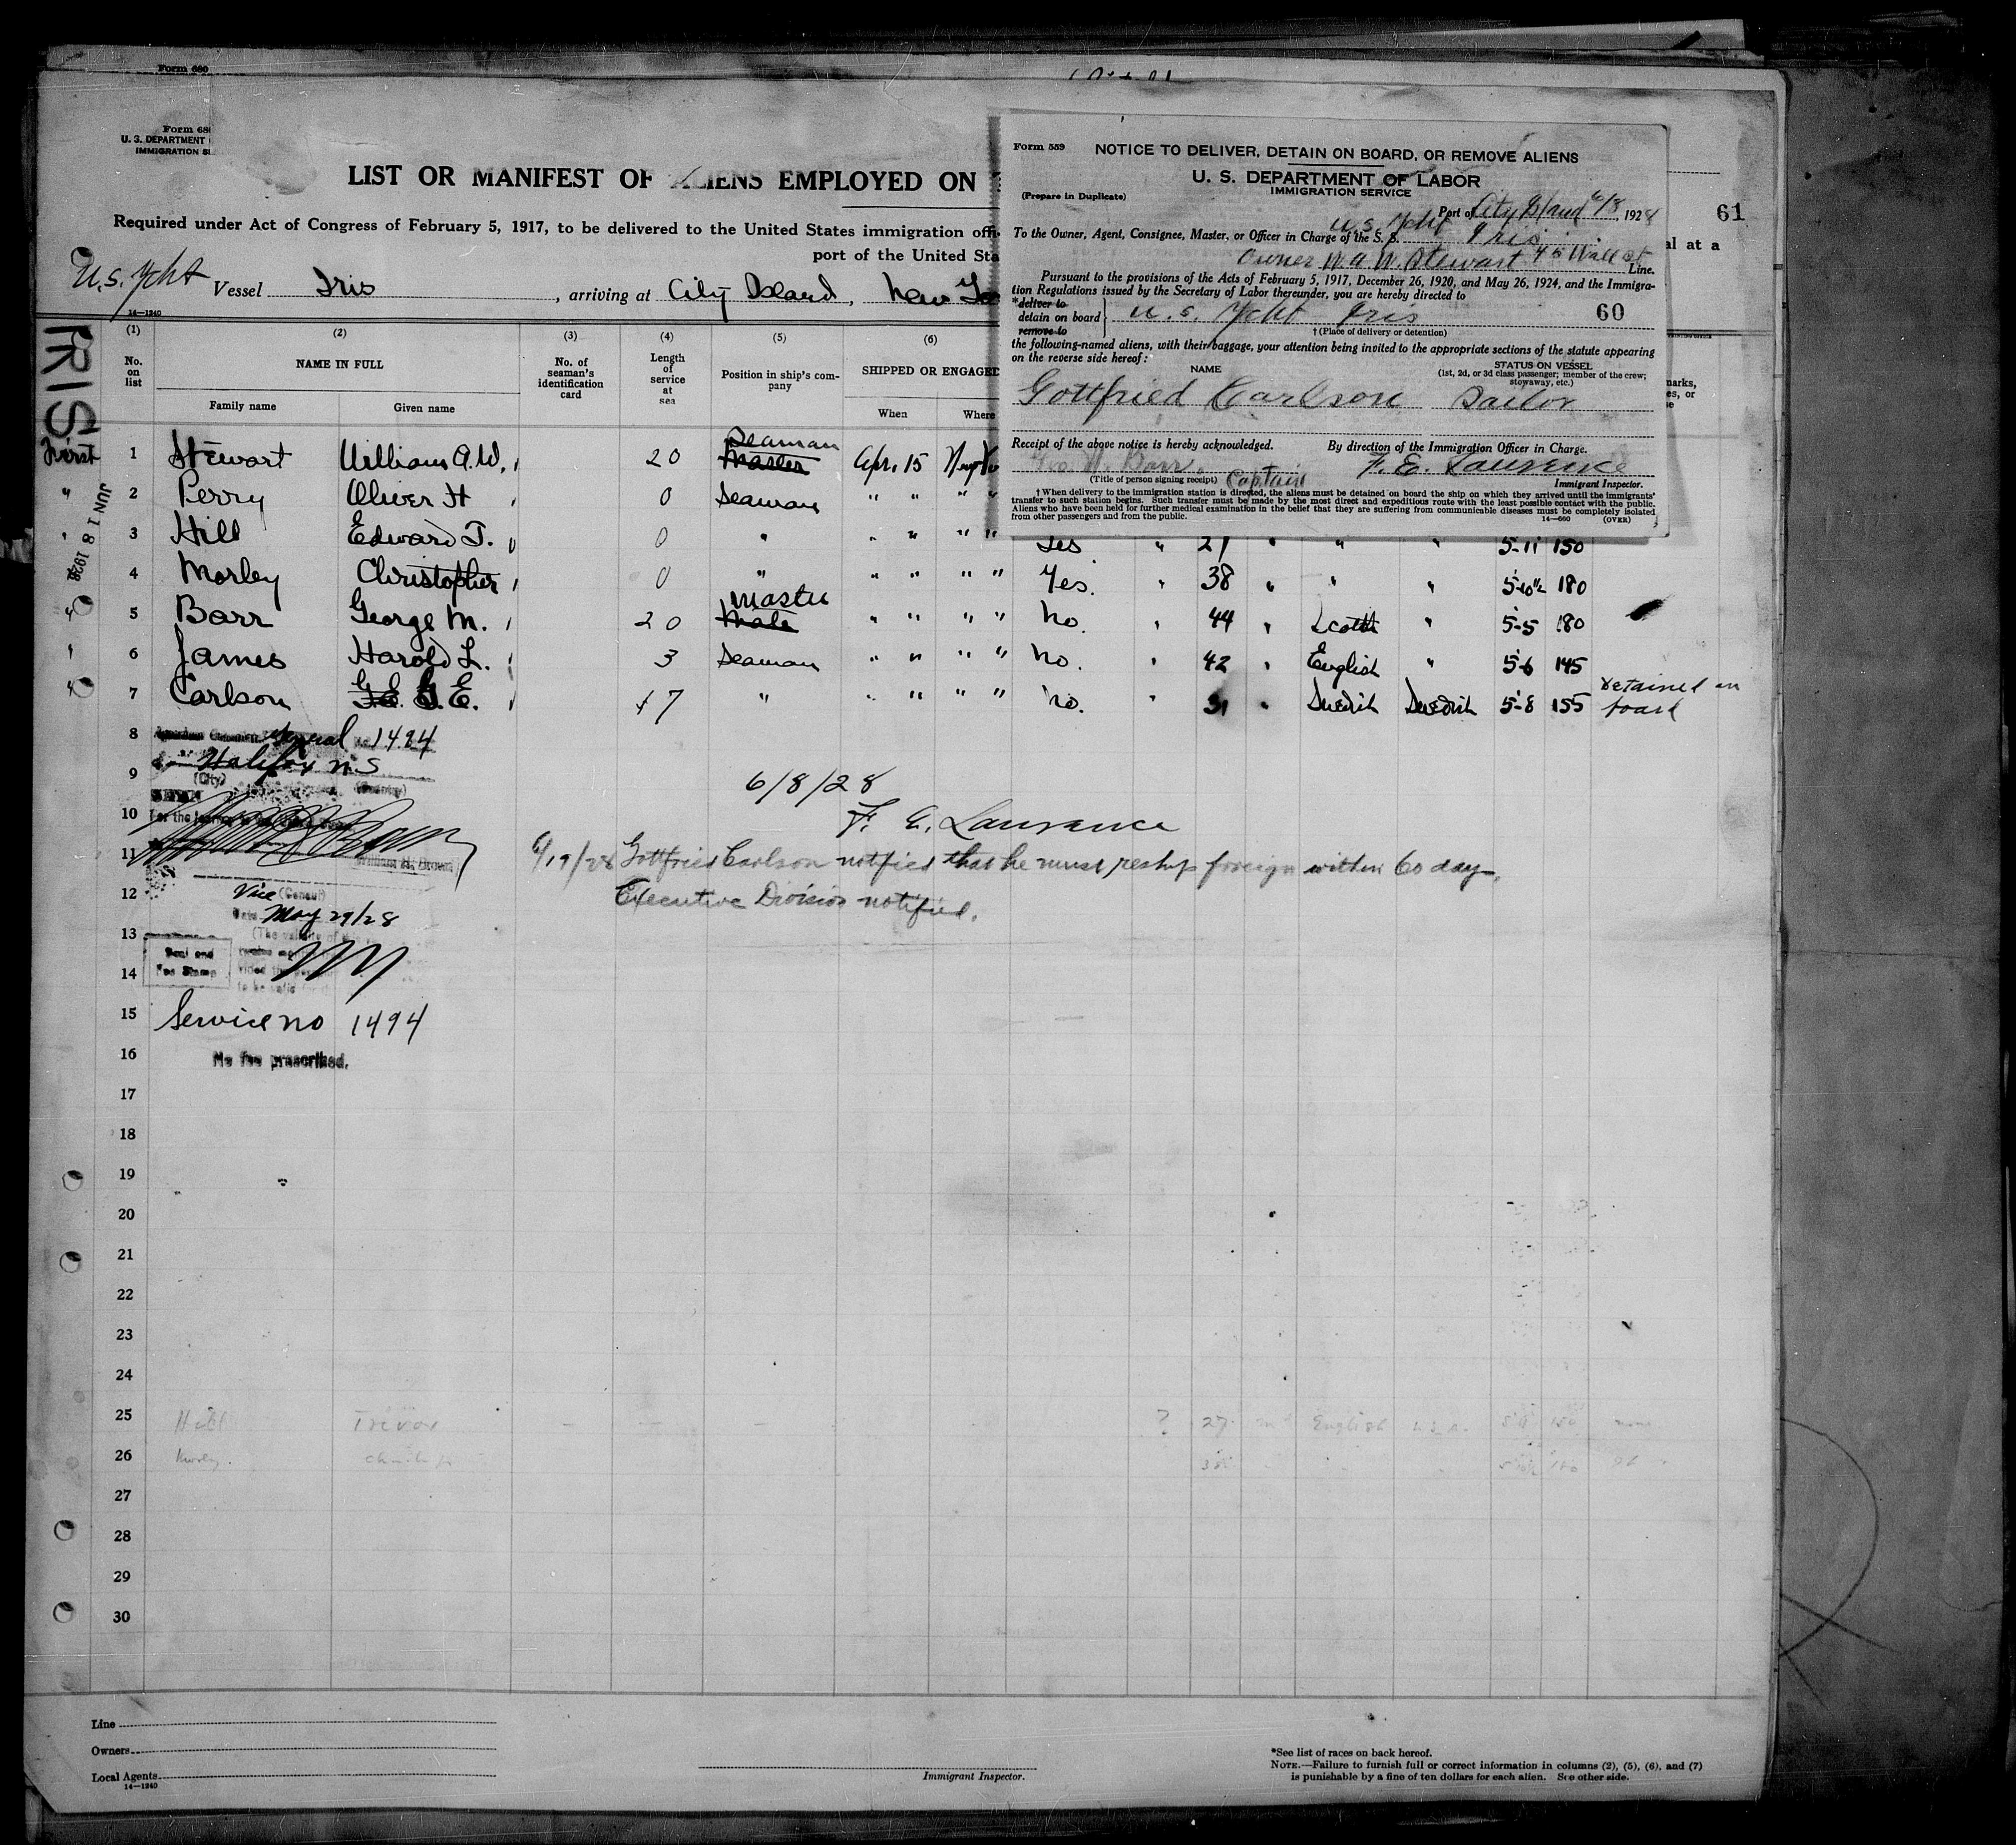 Form 680
Form 680
U. S. DEPARTMENT
IMMIGRATION
LIST OR MANIFEST OF ALIENS EMPLOYED ON
Required under Act of Congress of February 5, 1917, to be delivered to the United States immigration
port of the United
al at a
61
U.S. Ycht Vessel Iris, arriving at City Island, New
14—1240
Form 559
NOTICE TO DELIVER, DETAIN ON BOARD, OR REMOVE ALIENS
U. S. DEPARTMENT OF LABOR
IMMIGRATION SERVICE
(Prepare in Duplicate)
Port of City Island 6/8, 1928
U.S. Ycht
To the Owner, Agent, Consignee, Master, or Officer in Charge of the S. S. Iris
Owner W. A. W. Stewart 45 Wall St Line.
Pursuant to the provisions of the Acts of February 5, 1917, December 26, 1920, and May 26, 1924, and the Immigra-
tion Regulations issued by the Secretary of Labor thereunder, you are hereby directed to
*deliver to
detain on board
remove to
U. S. Ycht Iris
60
† (Place of delivery or detention)
the following-named aliens, with their baggage, your attention being invited to the appropriate sections of the statute appearing
on the reverse side hereof:
NAME
STATUS ON VESSEL
(1st, 2d, or 3d class passenger; member of the crew;
stowaway, etc.)
Gottfried Carlson Sailor
Receipt of the above notice is hereby acknowledged.
By direction of the Immigration Officer in Charge.
Geo M. Barr
F. E. Laurence
(Title of person signing receipt) Captain
Immigrant Inspector.
† When delivery to the immigration station is directed, the aliens must be detained on board the ship on which they arrived until the immigrants'
transfer to such station begins. Such transfer must be made by the most direct and expeditious route with the least possible contact with the public.
Aliens who have been held for further medical examination in the belief that they are suffering from communicable diseases must be completely isolated
from other passengers and from the public.
14—660
(OVER)
IRIS
JUN 18 1928
(1) (2) (3) (4) (5) (6)
No. on list
NAME IN FULL
Family name Given name
No. of seaman's identification card
Length of service at sea
Position in ship's com-pany
SHIPPED OR ENGAGED
When Where
First 1 Stewart William A. W. 20 Master Seaman Apr. 15
" 2 Perry Oliver H 0 Seaman " " " "
" 3 Hill Edward T. 0 " " " " " Yes " 27 " " " 5-11 150
4 Morley Christopher 0 " " " " " Yes. " 38 " " " 5-10½ 180
" 5 Barr George M. 20 Mate Master " " " " No. " 44 " Scotch " 5-5 180
" 6 James Harold L. 3 Seaman " " " " No. " 42 " English " 5-6 145
" 7 Carlson G. E. 7 " " " " " No. " 31 " Swedish Swedish 5-8 155 Detained on board
8 1494
9 Halifax N S
(City) (Country)
10 For the journey to
6/8/28
F. E. Laurence
11 William H. Brown
6/19/28 Gottfried Carlson notified that he must reship foreign within 60 days.
12 Executive Division notified.
Vice (Consul)
Date May 29/28
13
Seal and
Fee Stamp
14
15 Service no 1494
16 No fee prescribed.
17
18
19
20
21
22
23
24
25 Hill Trevor ? 27 English U.S.A. 150 none
26
27
28
29
30
Line
Owners
Local Agents
14—1240
Immigrant Inspector.
*See list of races on back hereof.
NOTE.—Failure to furnish full or correct information in columns (2), (5), (6), and (7)
is punishable by a fine of ten dollars for each alien. See other side.